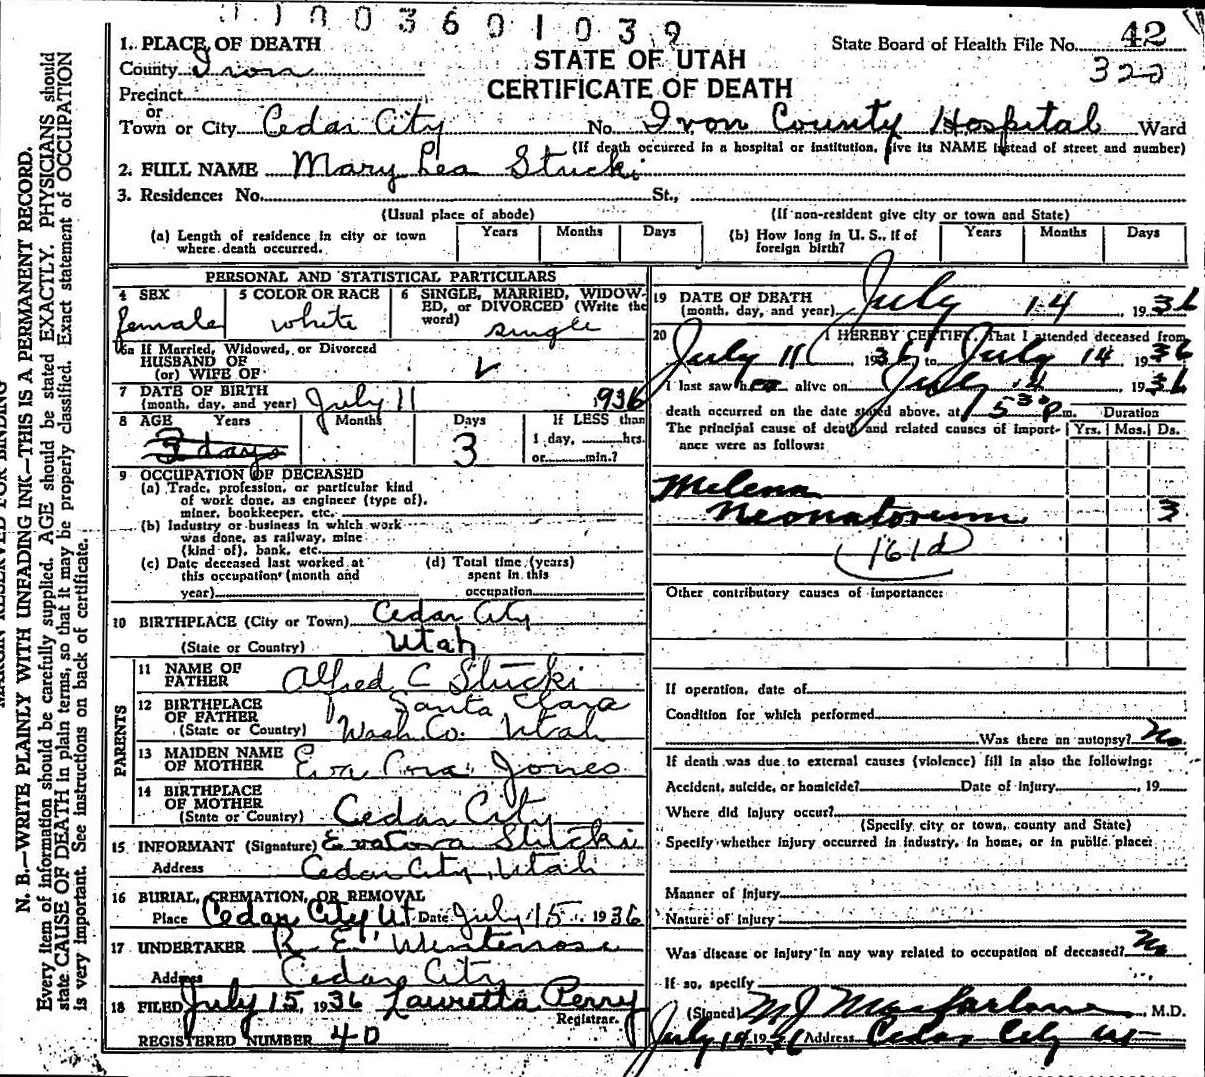 1003601039
STATE OF UTAH
CERTIFICATE OF DEATH
State Board of Health File No. 42
322
1. PLACE OF DEATH
County Iron
Precinct
or
Town or City Cedar City No. Iron County Hospital Ward
(If death occurred in a hospital or institution, give its NAME instead of street and number)
2. FULL NAME Mary Lea Stucki
3. Residence: No. St.,
(Usual place of abode) (If non-resident give city or town and State)
(a) Length of residence in city or town where death occurred. Years Months Days
(b) How long in U. S., if of foreign birth? Years Months Days
PERSONAL AND STATISTICAL PARTICULARS
4 SEX female
5 COLOR OR RACE white
6 SINGLE, MARRIED, WIDOWED, or DIVORCED (Write the word) single
6a If Married, Widowed, or Divorced
HUSBAND OF
(or) WIFE OF
7 DATE OF BIRTH
(month, day, and year) July 11 936
8 AGE Years Months Days If LESS than
3 days 3 1 day, hrs.
or min.?
9 OCCUPATION OF DECEASED
(a) Trade, profession, or particular kind
of work done, as engineer (type of),
miner, bookkeeper, etc.
(b) Industry or business in which work
was done, as railway, mine
(kind of), bank, etc.
(c) Date deceased last worked at
this occupation (month and
year)
(d) Total time (years)
spent in this
occupation
10 BIRTHPLACE (City or Town) Cedar City
(State or Country) Utah
PARENTS
11 NAME OF
FATHER Alfred C Stucki
12 BIRTHPLACE
OF FATHER Santa Clara
(State or Country) Wash. Co. Utah
13 MAIDEN NAME
OF MOTHER Eva Cora Jones
14 BIRTHPLACE
OF MOTHER
(State or Country) Cedar City
15 INFORMANT (Signature) Eva Cora Stucki
Address Cedar City, Utah
16 BURIAL, CREMATION, OR REMOVAL
Place Cedar City Ut Date July 15, 1936
17 UNDERTAKER
Address Cedar City
18 FILED July 15, 1936 Lauretta Perry
Registrar.
REGISTERED NUMBER 40
19 DATE OF DEATH
(month, day, and year) July 14 1936
20 I HEREBY CERTIFY, That I attended deceased from
July 11, 1936 to July 14 1936
I last saw her alive on July 14 1936
death occurred on the date stated above, at 5 30 p m. Duration
The principal cause of death and related causes of importance were as follows: Yrs. Mos. Ds.
Melena
Neonatorum 3
161d
Other contributory causes of importance:
If operation, date of
Condition for which performed
Was there an autopsy? No
If death was due to external causes (violence) fill in also the following:
Accident, suicide, or homicide? Date of injury , 19
Where did injury occur?
(Specify city or town, county and State)
Specify whether injury occurred in industry, in home, or in public place:
Manner of Injury
Nature of injury
Was disease or injury in any way related to occupation of deceased? No
If so, specify
(Signed) M J Macfarlane, M.D.
July 14 1936 Address Cedar City Ut
MARGIN RESERVED FOR BINDING
N. B.—WRITE PLAINLY WITH UNFADING INK—THIS IS A PERMANENT RECORD.
Every item of information should be carefully supplied. AGE should be stated EXACTLY. PHYSICIANS should
state CAUSE OF DEATH in plain terms, so that it may be properly classified. Exact statement of OCCUPATION
is very important. See instructions on back of certificate.